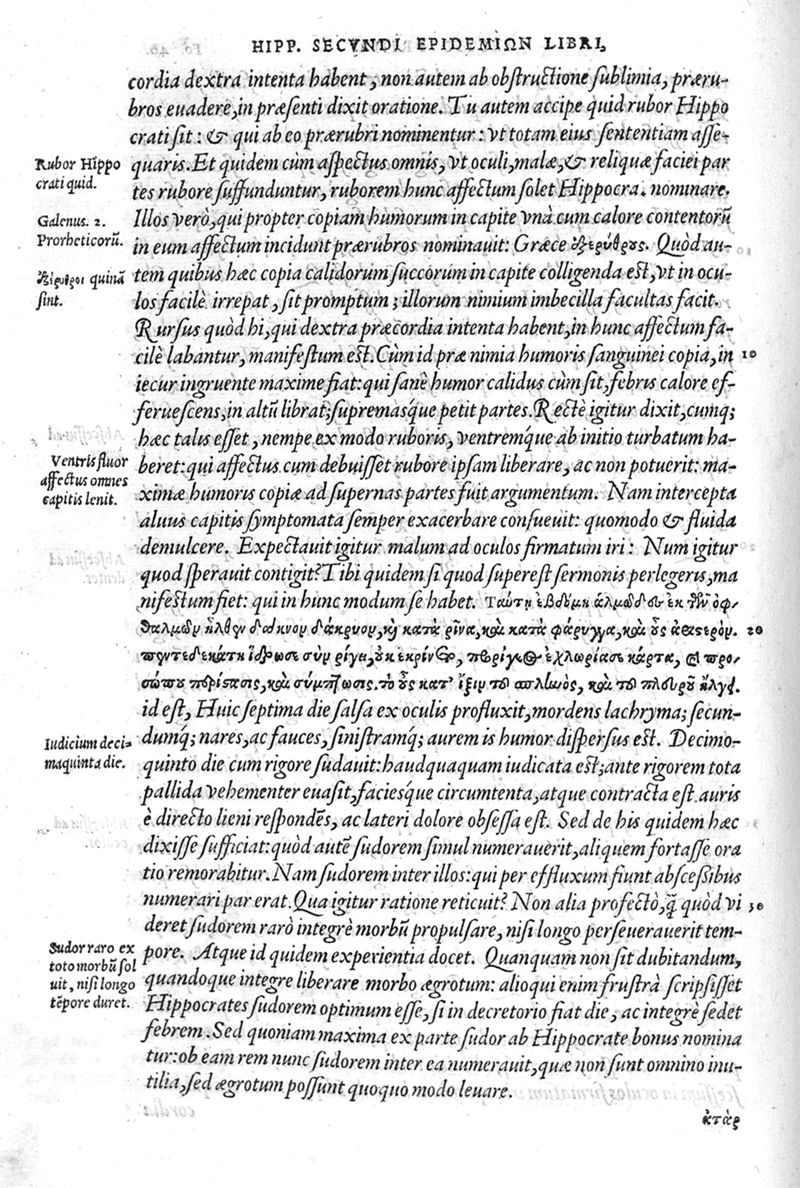 HIPP. SECVNDI EPIDEMIΩN LIBRI,
cordia dextra intenta habent, non autem ab obstructione sublimia, præru-
bros euadere, in præsenti dixit oratione. Tu autem accipe quid rubor Hippo
crati sit: & qui ab eo prærubri nominentur: vt totam eius sententiam asse-
quaris. Et quidem cùm aspectus omnis, vt oculi, malæ, & reliquæ faciei par
tes rubore suffunduntur, ruborem hunc affectum solet Hippocra. nominare.
Illos verò, qui propter copiam humorum in capite vnà cum calore contentorũ
in eum affectum incidunt prærubros nominauit: Græce ἐξερύθρους. Quòd au-
tem quibus hæc copia calidorum succorum in capite colligenda est, vt in ocu-
los facilè irrepat, sit promptum; illorum nimium imbecilla facultas facit.
Rursus quòd hi, qui dextra præcordia intenta habent, in hunc affectum fa-
cilè labantur, manifestum est. Cùm id præ nimia humoris sanguinei copia, in
iecur ingruente maxime fiat: qui sanè humor calidus cùm sit, febris calore ef-
feruescens, in altũ librat; supremasq́ue petit partes. Rectè igitur dixit, cumq;
hæc talis esset, nempe ex modo ruboris, ventremq́ue ab initio turbatum ha-
beret: qui affectus cum debuisset rubore ipsam liberare, ac non potuerit: ma-
ximæ humoris copiæ ad supernas partes fuit argumentum. Nam intercepta
aluus capitis symptomata semper exacerbare consueuit: quomodo & fluida
demulcere. Expectauit igitur malum ad oculos firmatum iri: Num igitur
quod sperauit contigit? Tibi quidem si quod superest sermonis perlegeris, ma
nifestum fiet: qui in hunc modum se habet. Ταύτῃ ἑβδόμῃ ἁλμῶδες ἐκ τῶν ὀφ-
θαλμῶν ἦλθεν δάκνον δάκρυον, καὶ κατὰ ῥῖνα, καὶ κατὰ φάρυγγα, καὶ οὖς ἀριστερόν.
πεντεδεκάτῃ ἵδρωσε σὺν ῥίγει, οὐκ ἐκρίνετο, πρὸ ῥίγεος ἐχλωρίασε κάρτα, καὶ προ-
σώπου περίτασις, καὶ σύμπτωσις. τὸ οὖς κατ' ἴξιν τοῦ σπληνὸς, καὶ τοῦ πλευροῦ ἤλγει.
id est, Huic septima die salsa ex oculis profluxit, mordens lachryma; secun-
dumq; nares, ac fauces, sinistramq; aurem is humor dispersus est. Decimo-
quinto die cum rigore sudauit: haudquaquam iudicata est; ante rigorem tota
pallida vehementer euasit, faciesque circumtenta, atque contracta est. auris
è directo lieni respondēs, ac lateri dolore obsessa est. Sed de his quidem hæc
dixisse sufficiat: quòd autē sudorem simul numerauerit, aliquem fortasse ora
tio remorabitur. Nam sudorem inter illos: qui per effluxum fiunt abscessibus
numerari par erat. Qua igitur ratione reticuit? Non alia profectò, q̃ quòd vi
deret sudorem rarò integrè morbũ propulsare, nisi longo perseuerauerit tem-
pore. Atque id quidem experientia docet. Quanquam non sit dubitandum,
quandoque integre liberare morbo ægrotum: alioqui enim frustrà scripsisset
Hippocrates sudorem optimum esse, si in decretorio fiat die, ac integrè sedet
febrem. Sed quoniam maxima ex parte sudor ab Hippocrate bonus nomina
tur: ob eam rem nunc sudorem inter ea numerauit, quæ non sunt omnino inu-
tilia, sed ægrotum possunt quoquo modo leuare.
ἀτὰρ
Rubor Hippo
crati quid.
Galenus. 2.
Prorheticorũ.
ἐξέρυθροι quinã
sint.
Ventris fluor
affectus omnes
capitis lenit.
Iudicium deci-
maquinta die.
Sudor raro ex
toto morbũ sol
uit, nisi longo
tēpore duret.
10
20
30